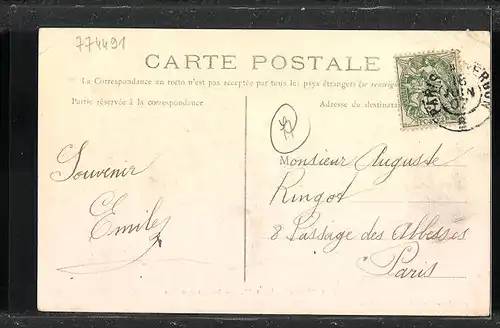 774491
CARTE POSTALE
La Correspondance au recto n'est pas acceptée par tous les pays étrangers (se renseign
Partie réservée à la correspondance
Adresse du destinatai
PARIS
JUIN
Souvenir
Emile
Monsieur Auguste
Ringot
8 Passage des Abbesses
Paris